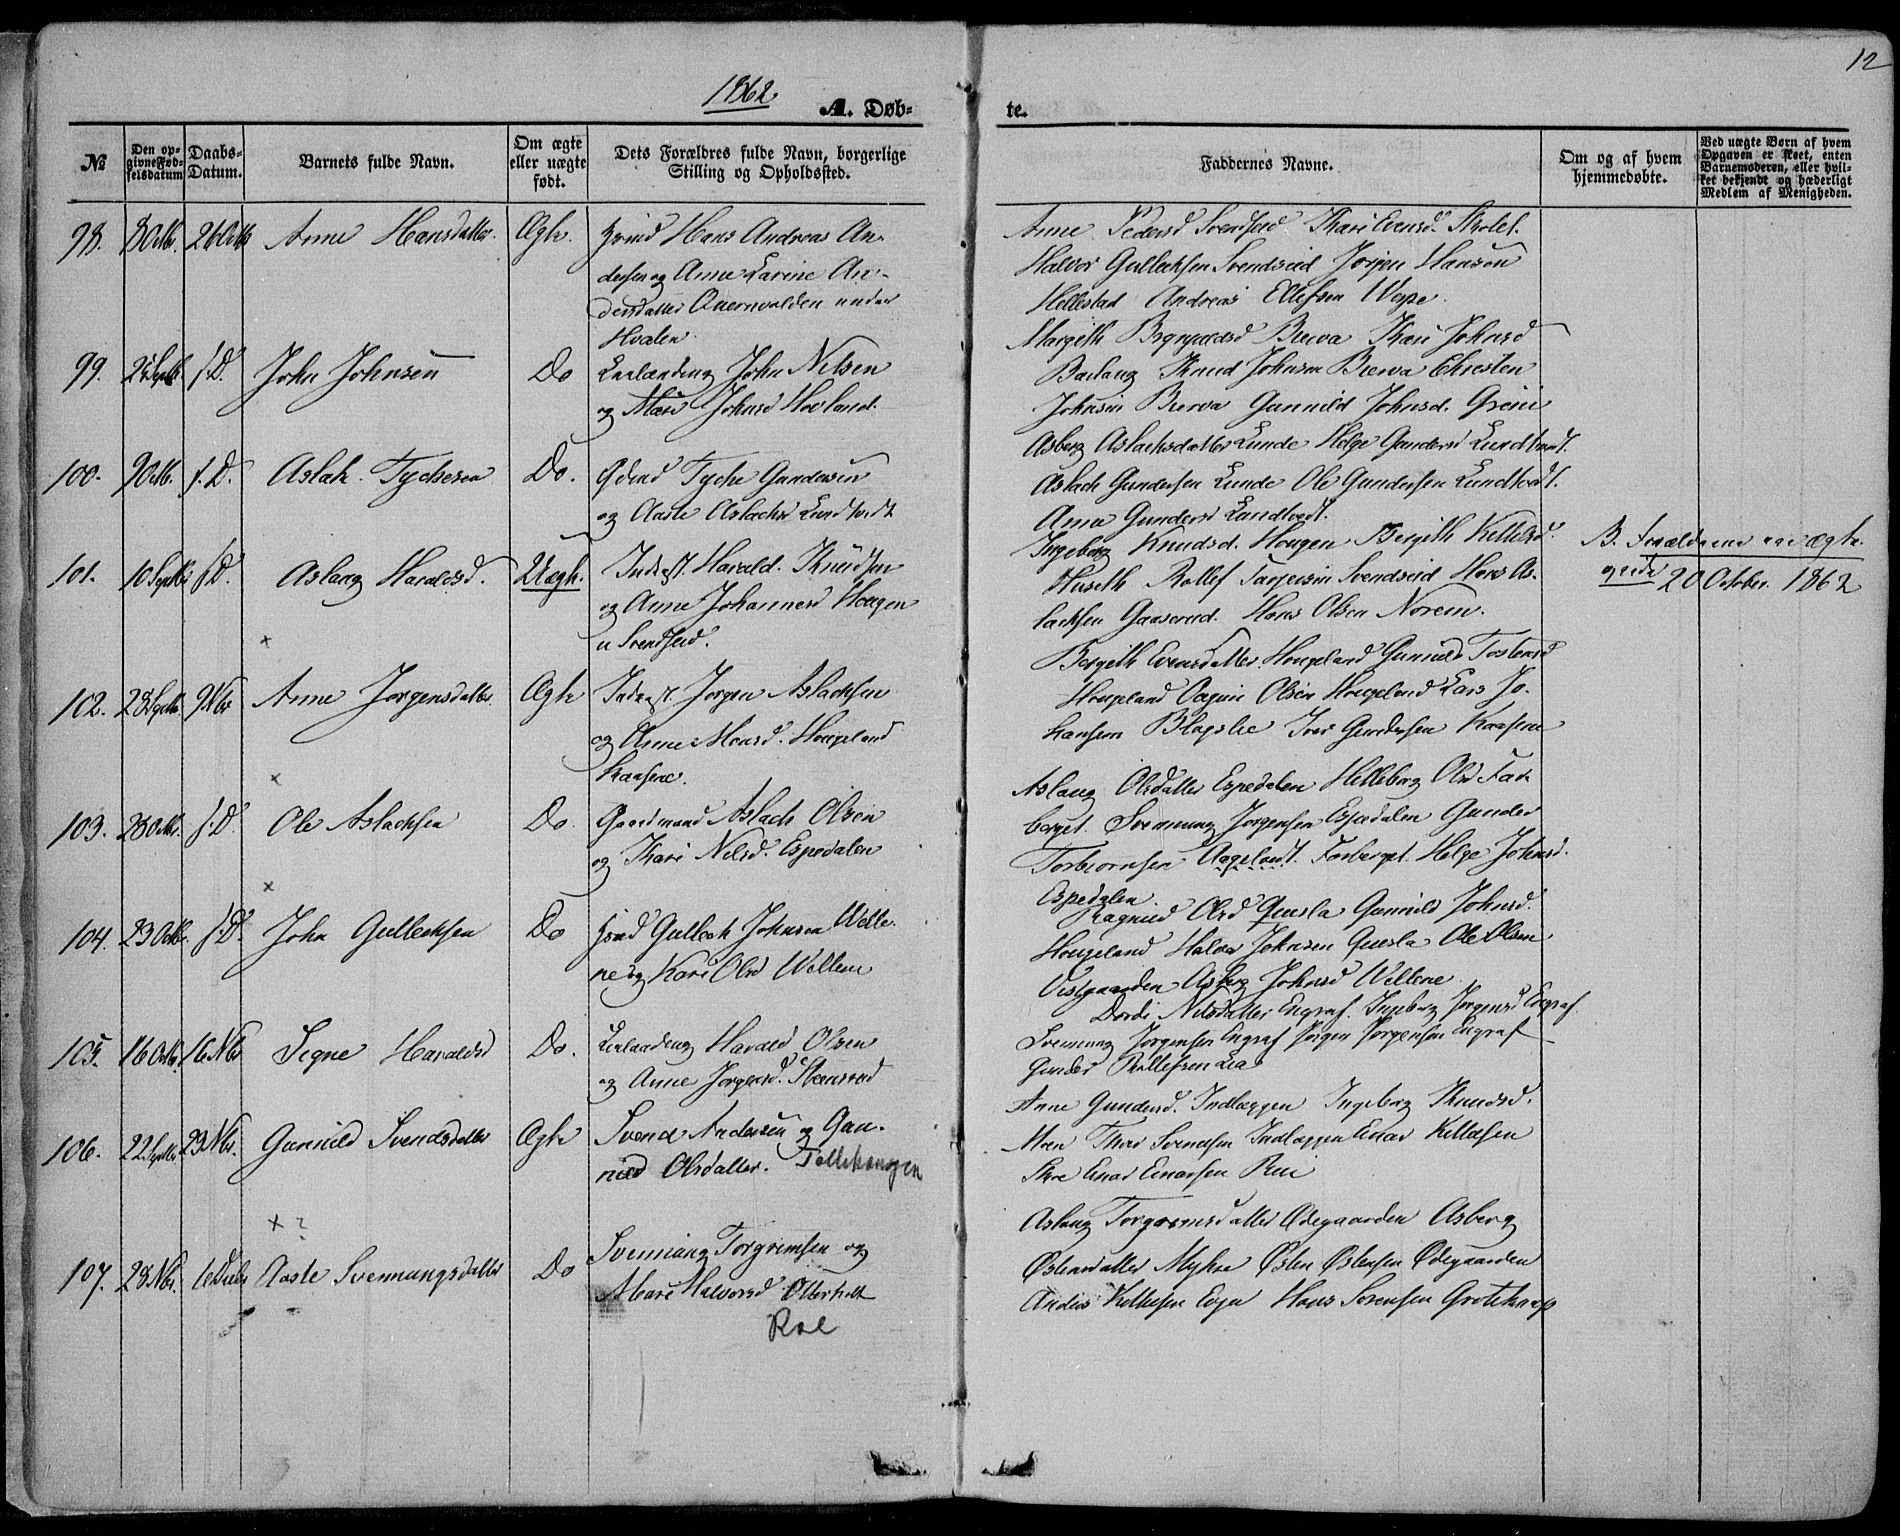 1862
12
A. Døb-
te.
№
Den op-
givne Fød-
selsdatum
Daabs-
Datum.
Barnets fulde Navn.
Om ægte
eller uægte
født.
Dets Forældres fulde Navn, borgerlige
Stilling og Opholdssted.
Faddernes Navne.
Om og af hvem
hjemmedøbte.
Ved uægte Børn af hvem
Opgaven er skeet, enten
Barnemoderen, eller hvil-
ket bekjendt og hæderligt
Medlem af Menigheden.
98. 8 Octbr. 26 Octb Anne Hansdatter. Ægte.
Hans Andreas An-
dersen og Anne Karine An-
dersdatter under
Hvalen.
Anne Pedersd Svendseid Kari Evensd.
Halvor Gullecksen Svendseid Jørgen Hansen
Hellestad Andreas Ellefsen
99. Septb. s. D. John Johnsen Do
Leilænding John Nilsen
og Johnsd Hovland.
Margith Kari Johnsd
Knud Johnsen Christen
Johnsen Gunnild Johnsd. Greini
100. 9 Octb. s. D. Aslak Tychesen Do.
Tyche Gundersen
og Aaste Aslachsd Lundtvedt
Asberg Aslachsdatter Lunde Helge Gundersd Lundtvedt.
Aslach Gundersen Lunde Ole Gundersen Lundtvedt.
Anne Gundersd Lundtvedt.
101. 10 Septb s. D. Aslaug Haraldsd. Uægte.
Inderst. Harald Knudsen
og Anne Johannesd Hougen
u Svendseid.
Ingeborg Knudsd. Hougen Bergith Kittilsd.
Huseth Rollef Svendseid Hans As-
lachsen Gaaserud. Hans Olsen Norem.
B. Forældrene
20 October 1862
102. 28 Septb. 9 Nbr Anne Jørgensdatter Ægte
Inderst Jørgen Aslachsen
og Anne Monsd. Hougeland
Kaasene.
Bergith Evensdatter Hougeland Gunnild Tostensd
Hougeland Olsen Hougeland Lars Jo-
hansen Iver Gundersen Kaasene
103. 28 Octbr. s. D. Ole Aslachsen Do.
Gaardmand Aslach Olsen
og Kari Nilsd. Espedalen
Aslaug Olsdatter Espedalen Helleborg Olsd For-
berget. Svennung Jørgensen Espedalen Gunder
Torbiørnsen Aagetvedt. Forberget. Helge Johnsd.
Espedalen.
104. 23 Octbr. s. D. John Gullecksen Do
Gulleck Johnsen Welle-
ne og Kari Olsd Wellene
Ragnild Olsd Quesla Gunnild Johnsd.
Hougeland Halvor Johnsen Quesla Ole Olsen
Vestgaarden Asberg Johnsd Wellene
105. 16 Octbr 16 Nbr Signe Haraldsd Do.
Leilænding Harald Olsen
og Anne Jørgensd. Steensrud
Dordi Nilsdatter Engraf. Ingeborg Jørgensd Engraf.
Svennung Jørgensen Engraf Jørgen Jørgensen Engraf
Gunder Rollefsen Lia
106. 22 Septbr 23 Nbr. Gunnild Svendsdatter Ægte
Svend Andersen og Gun-
nild Olsdatter.
Anne Gundersd. Indlæggen Ingeborg Knudsd.
Moen Thor Svendsen Indlæggen Einar Kittelsen
Einar Einarsen
107. 28 Nbr. 6 Decbr Aaste Svennungsdatter Do
Svennung Torgrimsen og
Mari Halvorsd Otterholt
Roe
Aslaug Torgrimsdatter Ødegaarden Asberg
Østensdatter Myhre Østen Østensen Ødegaarden
Anders Kittelsen Hans Sørensen